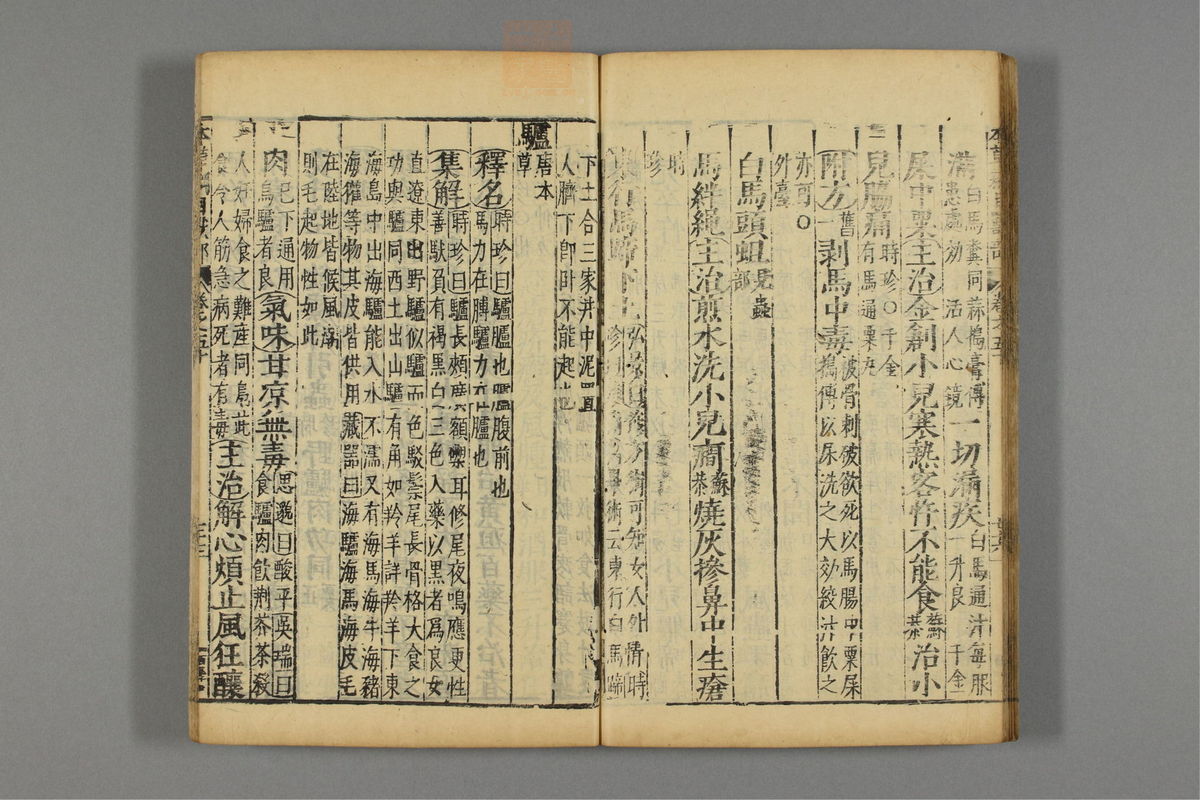 滿白馬糞同蒜搗膏傅患處効 活人心鏡一切漏疾白馬通汁每服一升良 千金
屎中粟主治金創小兒寒熱客忤不能食蘇恭治小
兒脇痛時珍○千金有馬通粟丸
附方舊一剥馬中毒被骨刺破欲死以馬腸中粟屎搗傅以尿洗之大効絞汁飲之
亦可○外臺
白馬頭蛆見蟲部
馬絆繩主治煎水洗小兒癇蘇恭燒灰摻鼻中生瘡
時珍
東行馬蹄下土弘景曰 方術可知女人外情時珍曰 術云東行白馬蹄
下土合三家井中泥置人臍下卽卧不能起也
驢唐本草
釋名時珍曰驢臚也臚腹前也馬力在膊驢力在臚也
集解時珍曰驢長頰廣額磔耳修尾夜鳴應更性善馱負有褐黑白三色入藥以黑者爲良女
直遼東出野驢似驢而色駁鬃尾長骨格大食之功與驢同西土出山驢有角如羚羊詳羚羊下東
海島中出海驢能入水不濡又有海馬海牛海豬海獾等物其皮皆供用藏器曰海驢海馬海皮毛
在陸地皆候風潮則毛起物性如此
肉已下通用烏驢者良氣味甘凉無毒思邈曰酸平吳瑞曰食驢肉飮荆芥茶殺
人姙婦食之難産同鳧茈食令人筋急病死者有毒主治解心煩止風狂釀